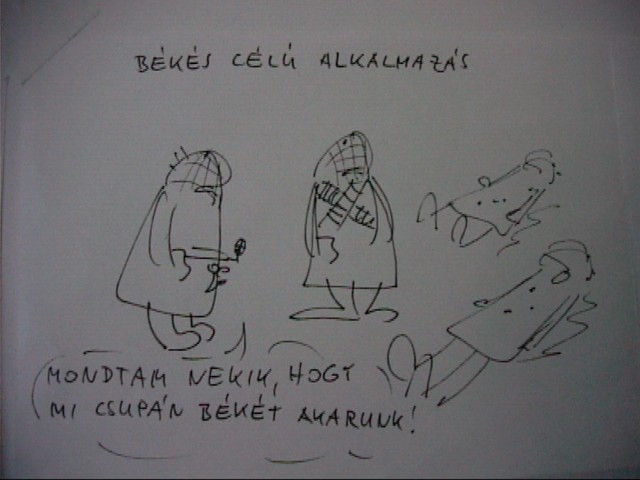 BÉKÉS CÉLÚ ALKALMAZÁS
MONDTAM NEKIK, HOGY
MI CSUPÁN BÉKÉT AKARUNK!